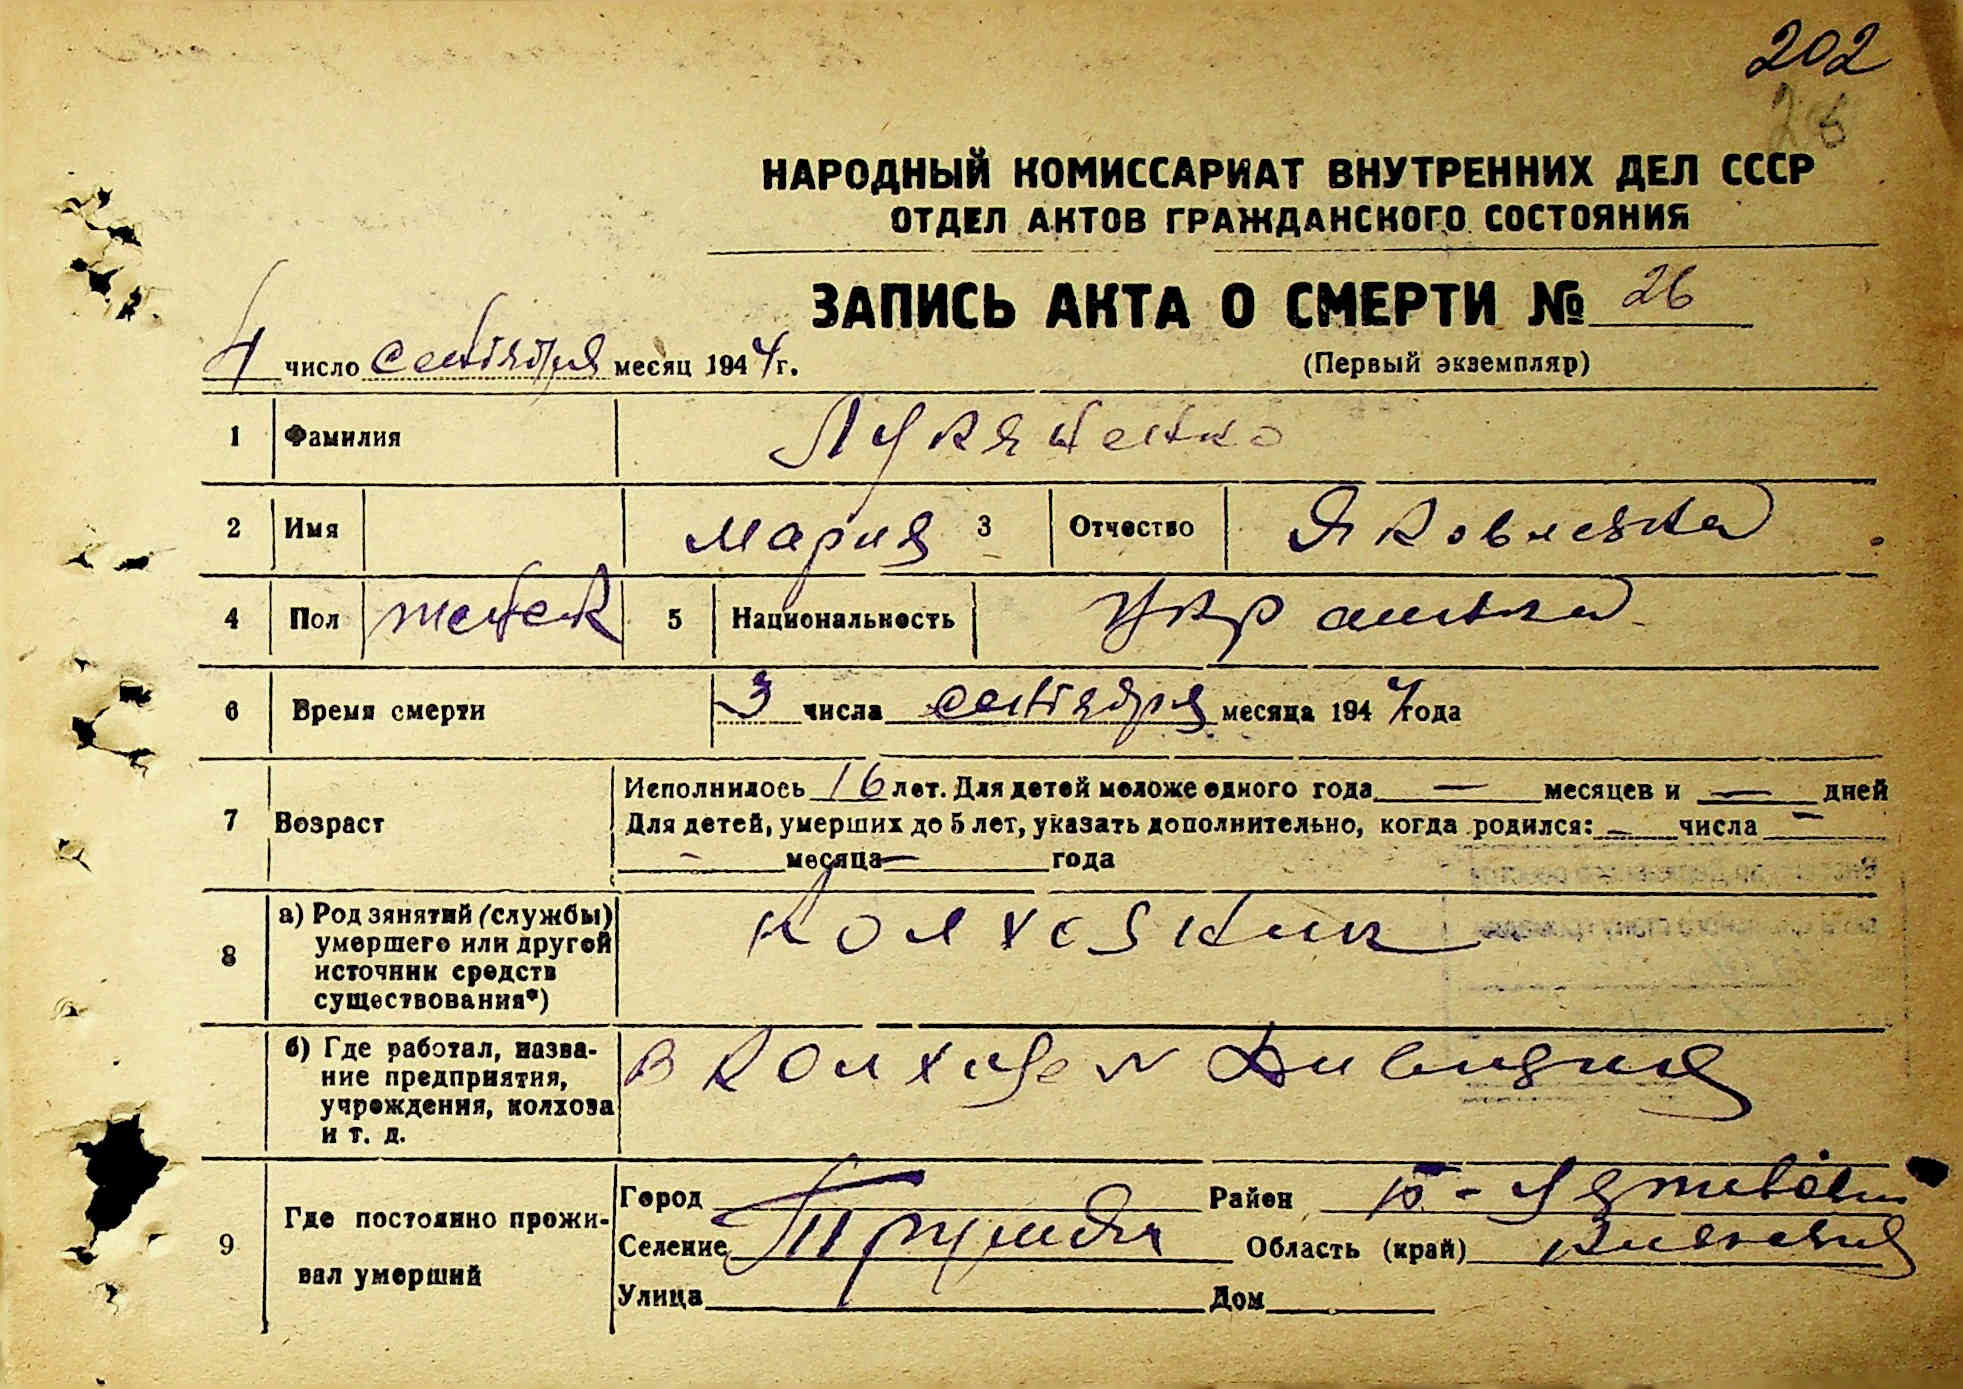 202
26
НАРОДНЫЙ КОМИССАРИАТ ВНУТРЕННИХ ДЕЛ СССР
ОТДЕЛ АКТОВ ГРАЖДАНСКОГО СОСТОЯНИЯ
ЗАПИСЬ АКТА О СМЕРТИ № 26
4 число сентября месяц 1944 г.
(Первый экземпляр)
1 Фамилия Лукяненко
2 Имя Мария 3 Отчество Яковлевна
4 Пол женск 5 Национальность Украинка
6 Время смерти 3 числа сентября месяца 1944 года
7 Возраст Исполнилось 16 лет. Для детей моложе одного года — месяцев и — дней
Для детей, умерших до 5 лет, указать дополнительно, когда родился: — числа —
— месяца — года
8 а) Род занятий (службы) умершего или другой источник средств существования*) Колхозник
б) Где работал, название предприятия, учреждения, колхоза и т. д. В колхозе Дивизия
9 Где постоянно проживал умерший
Город Район
Селение Область (край) Киевская
Улица Дом